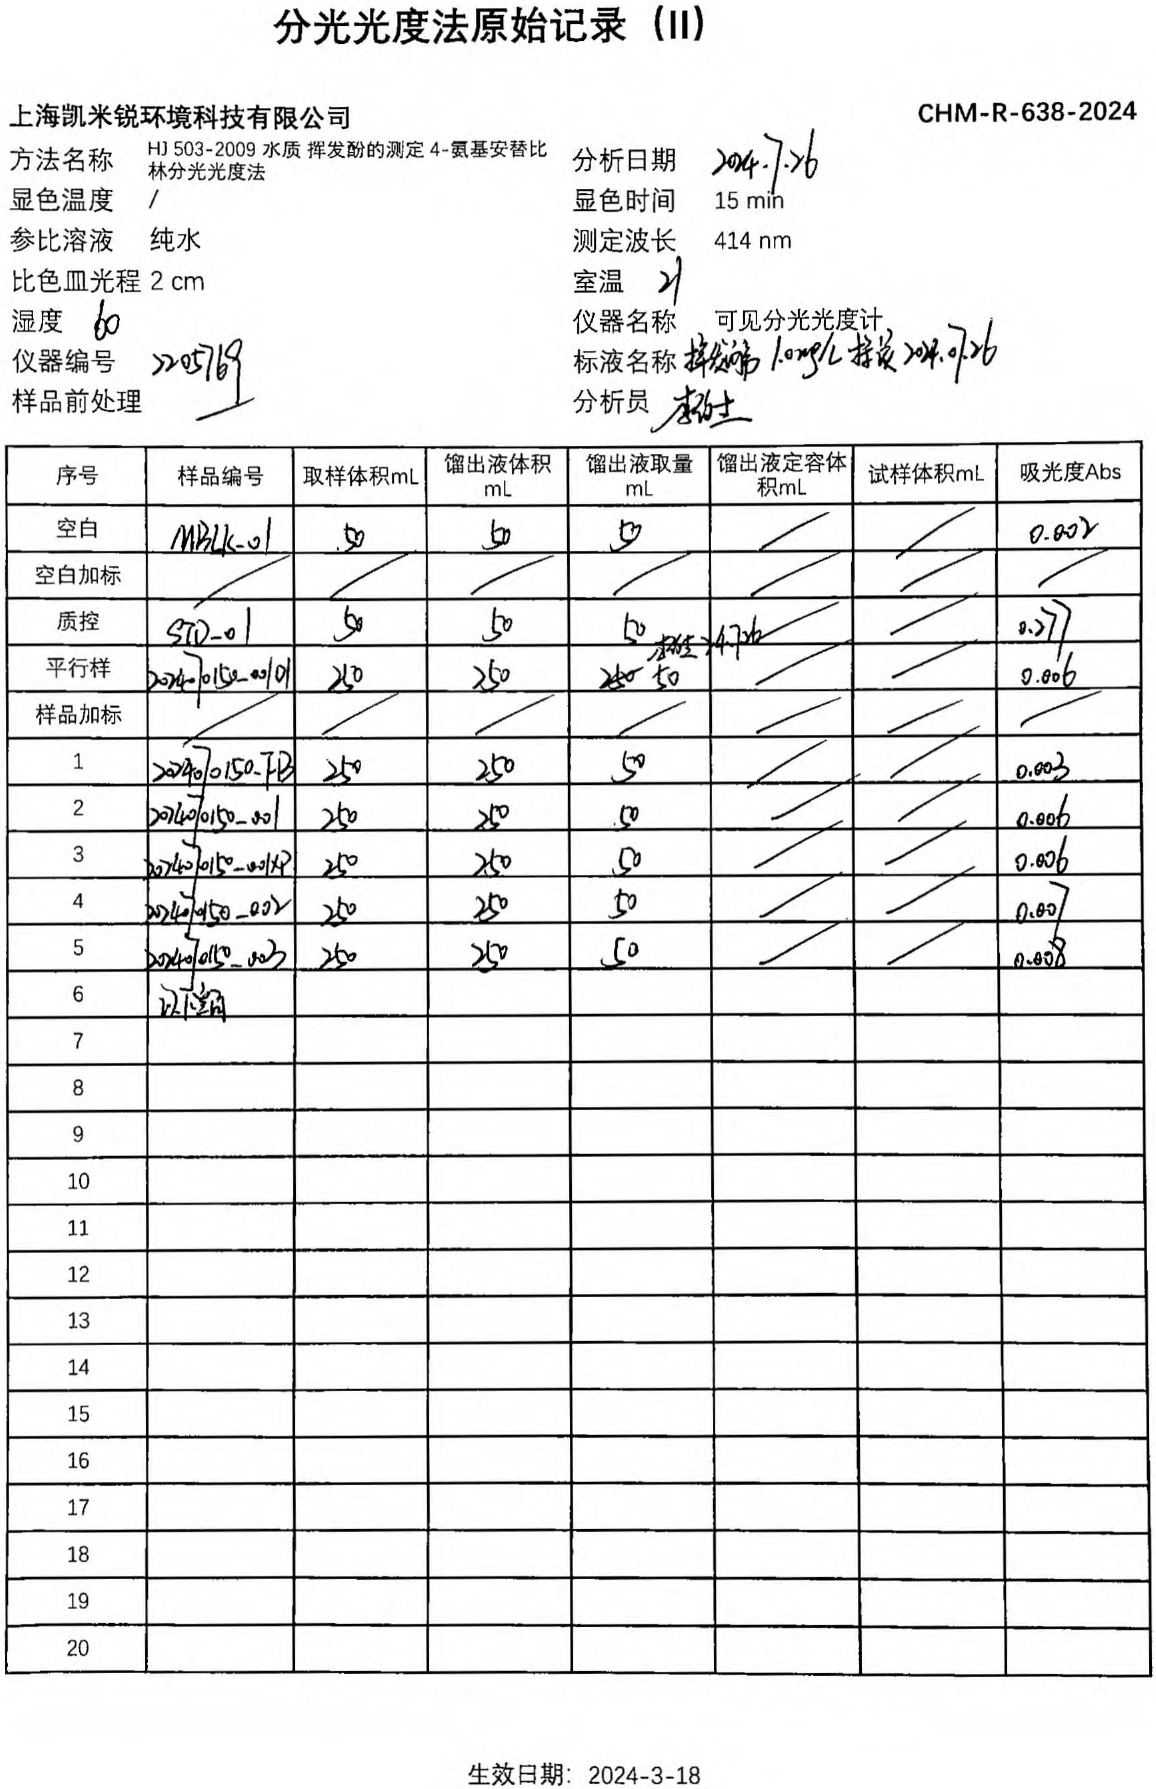 分光光度法原始记录（II）
上海凯米锐环境科技有限公司 CHM-R-638-2024
方法名称 HJ 503-2009 水质 挥发酚的测定 4-氨基安替比林分光光度法 分析日期 2024.7.26
显色温度 / 显色时间 15 min
参比溶液 纯水 测定波长 414 nm
比色皿光程 2 cm 室温 21
湿度 60 仪器名称 可见分光光度计
仪器编号 2205769 标液名称 挥发酚 1.0mg/L 2024.07.26
样品前处理 / 分析员
序号 样品编号 取样体积mL 馏出液体积mL 馏出液取量mL 馏出液定容体积mL 试样体积mL 吸光度Abs
空白 MBLK-01 50 50 50 / / 0.002
空白加标 / / / / / / /
质控 STD-01 50 50 50 / / 0.277
平行样 2024070150-00101 250 250 250 50 24.7.26 / / 0.006
样品加标 / / / / / / /
1 2024070150-FB 250 250 50 / / 0.003
2 2024070150-001 250 250 50 / / 0.006
3 2024070150-001XP 250 250 50 / / 0.006
4 2024070150-002 250 250 50 / / 0.007
5 2024070150-003 250 250 50 / / 0.008
6 以下空白
7
8
9
10
11
12
13
14
15
16
17
18
19
20
生效日期：2024-3-18